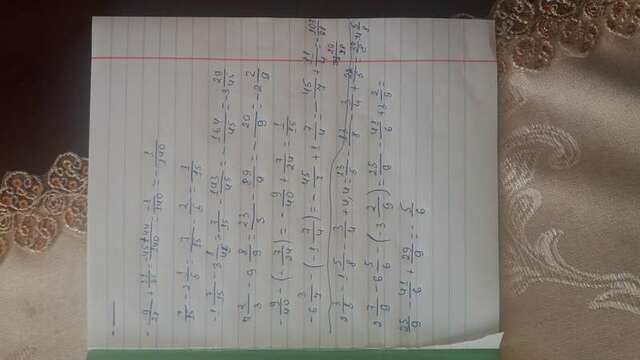 - 9/28 + 11/35 = -45+44/140 = -1/140 = - 1/140
7/15 - 2 1/5 = 7/15 - 2/5 = 1/15
-1 7/15 - 3 8/45 = 7/15 - 143/45 = - 164/45 = -3 29/45
7 2/3 - 9 8/9 = 23/3 - 89/9 = - 20/9 = -2 2/9
- 9/40 - (- 7/24) = - 9/40 + 7/24 = 1/15
-6 3/7 - (-1 7/4) = - 45/7 + 1 7/4 = - 45/7 + 11/4 = - 103/28
2 3/5 - 1 5/8 - 3/4 + 4,4 = 13/5 - 13/8 - 3/4 + 22/5 =
2 7/9 - 6 5/6 - (-3 2/9) = 25/9 - 41/6 + 3 2/9 =
25/9 - 41/6 + 29/9 = - 5/6